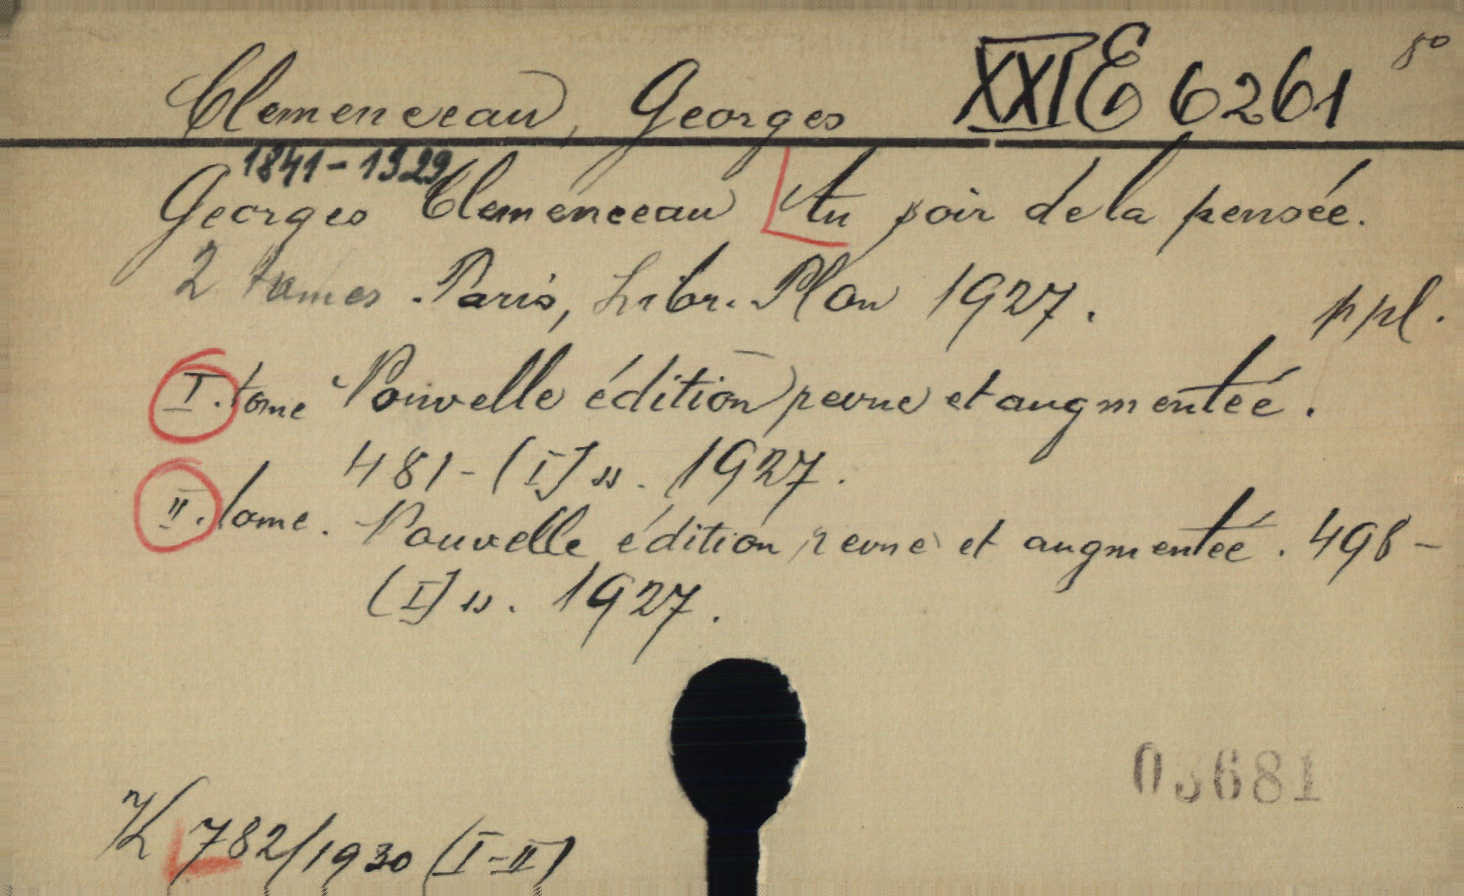 Clemenceau, Georges XXI E 6261 8°
1841-1929
Georges Clemenceau Au soir de la pensée.
2 tomes. Paris, Libr. Plon 1927. ppl.
I. tome Nouvelle édition revue et augmenteé.
481-(I] ss. 1927.
II. tome. Nouvelle édition revue et augmenteé. 498-
(I] ss. 1927.
03681
K 782/1930 (I-II)